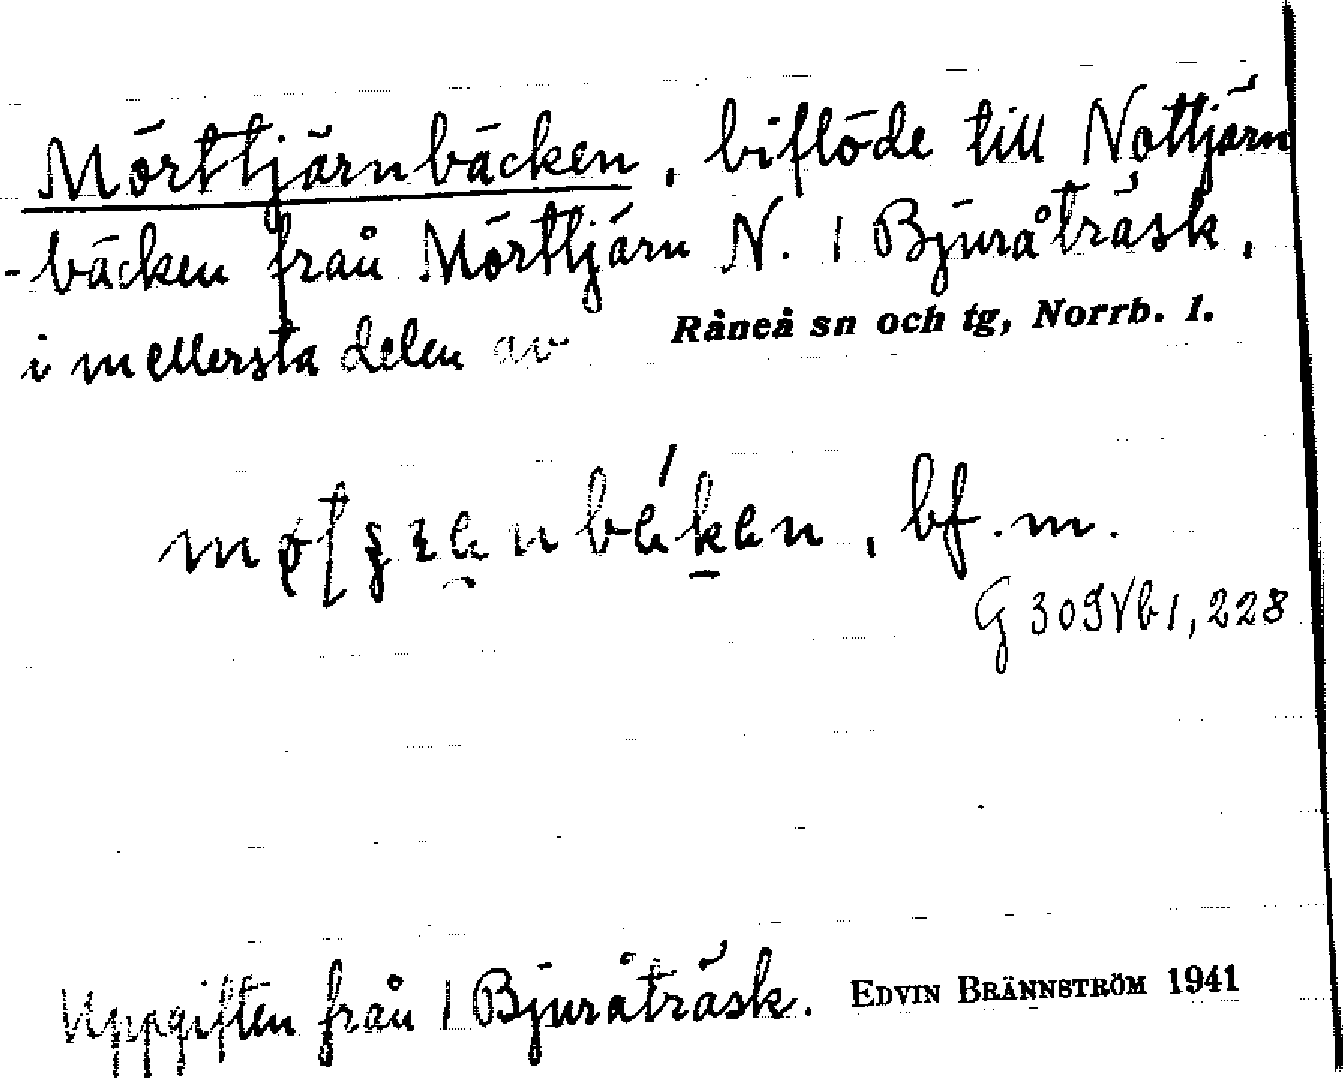 Mörttjärnbäcken, biflöde till Nottjärn
-bäcken från Mörttjärn N. 1 Bjuråträsk,
i mellersta delen av Råneå sn och tg, Norrb. l.
bf. m.
G 309Vb1, 228
Uppgiften från 1 Bjuråträsk. EDVIN BRÄNNSTRÖM 1941